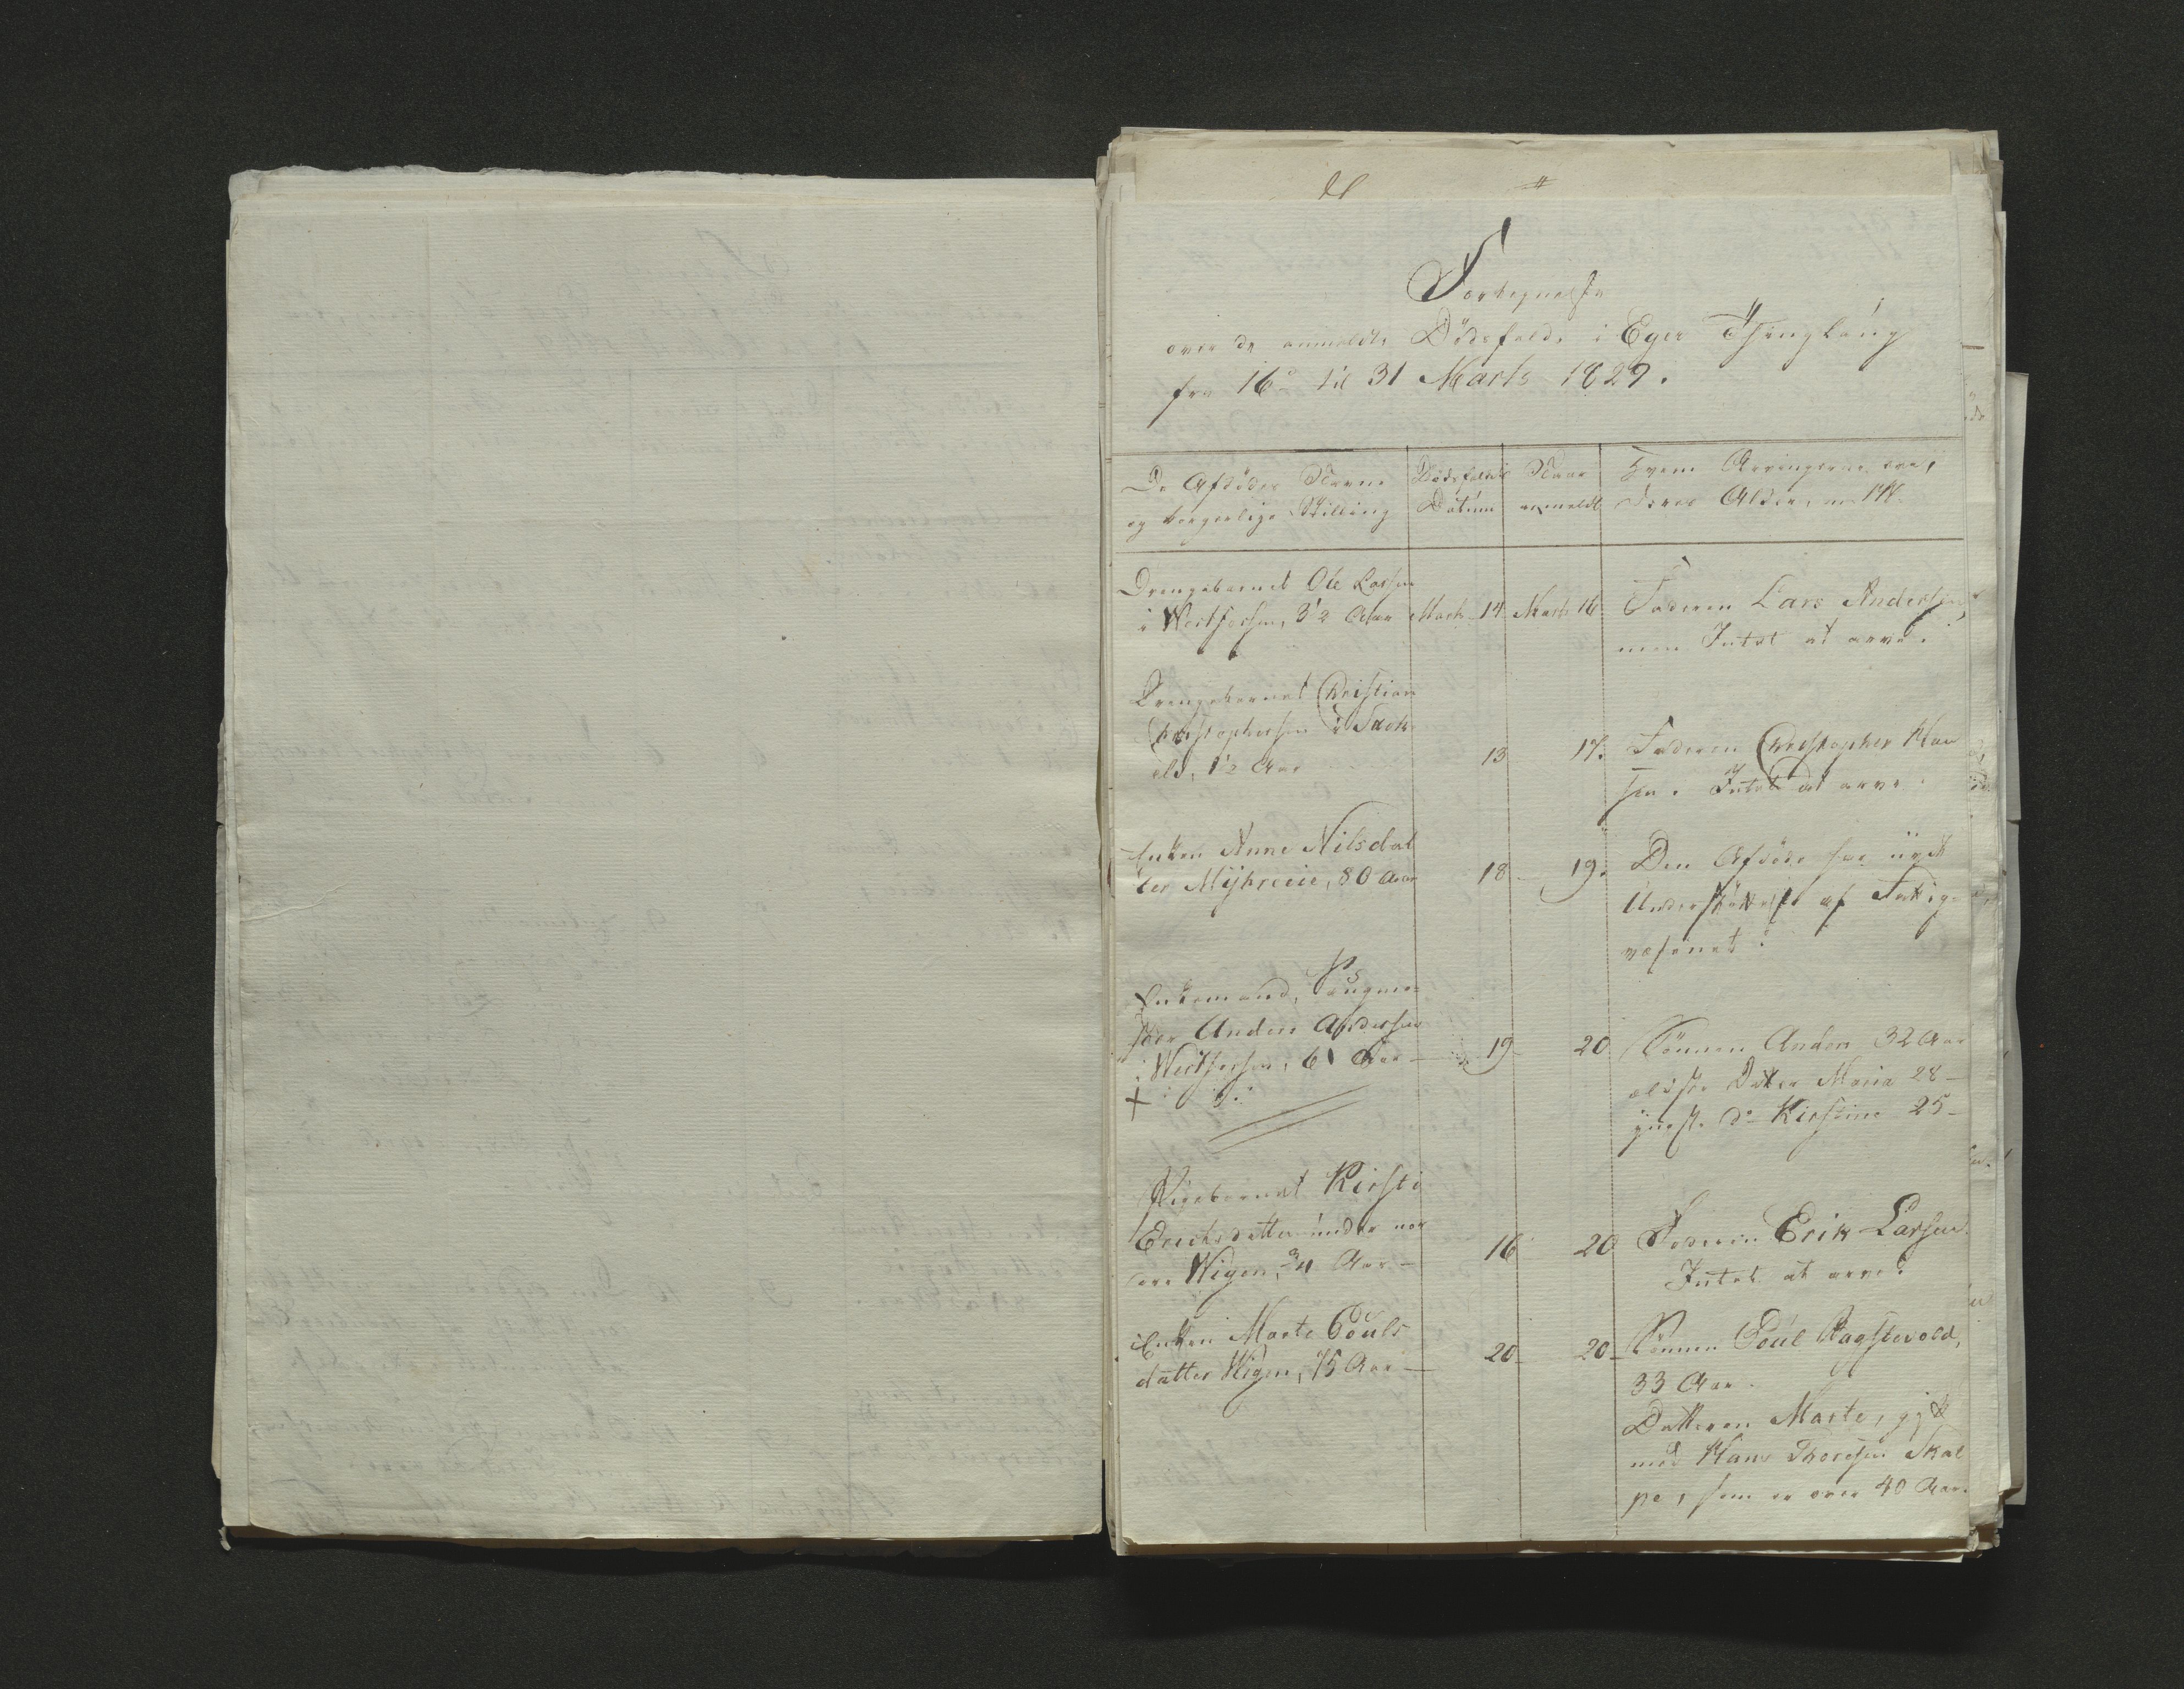 Fortegnelse
over de anmeldte Dödsfald i Eger Thinglaug
fra 16de til 31 Marts 1829.
De Afdödes Navne
og borgerlige Stilling
Dödsfaldets
Datum
Naar
anmeldt
Hvem Arvingerne ere,
deres Alder, m. M.
Drengebarnet Ole Larsen
i Westfossen, 3½ Aar Marts 14. Marts 16.
Faderen Lars Andersen,
men Intet at arve.
Drengebarnet Christian
Christophersen i
1½ Aar 13 17.
Faderen Christopher Han
sen. Intet at arve.
Enken Anne Nilsdat
ter Myhreeie, 80 Aar 18 - 19.
Den Afdöde har nydt
Understöttelse af Fattig-
væsenet.
Enkemand, Saugme-
ster Anders Andersen
i Westfossen, 61 Aar - 19 - 20
Sönnen Anders 32 Aar
ældste Datter Maria 28 -
yngste do Kirstine 25 -
Pigebarnet Kirsti
Erichsdatter under nor
dre Wigen, ¾ Aar - 16 20
Faderen Erik Larsen.
Intet at arve.
Enken Marte Pouls
datter Wigen, 75 Aar - 20 - 20 -
Sönnen Poul Hagstevold,
33 Aar.
Datteren Marte, gift
med Hans Thoresen Skal
pe, som er over 40 Aar.